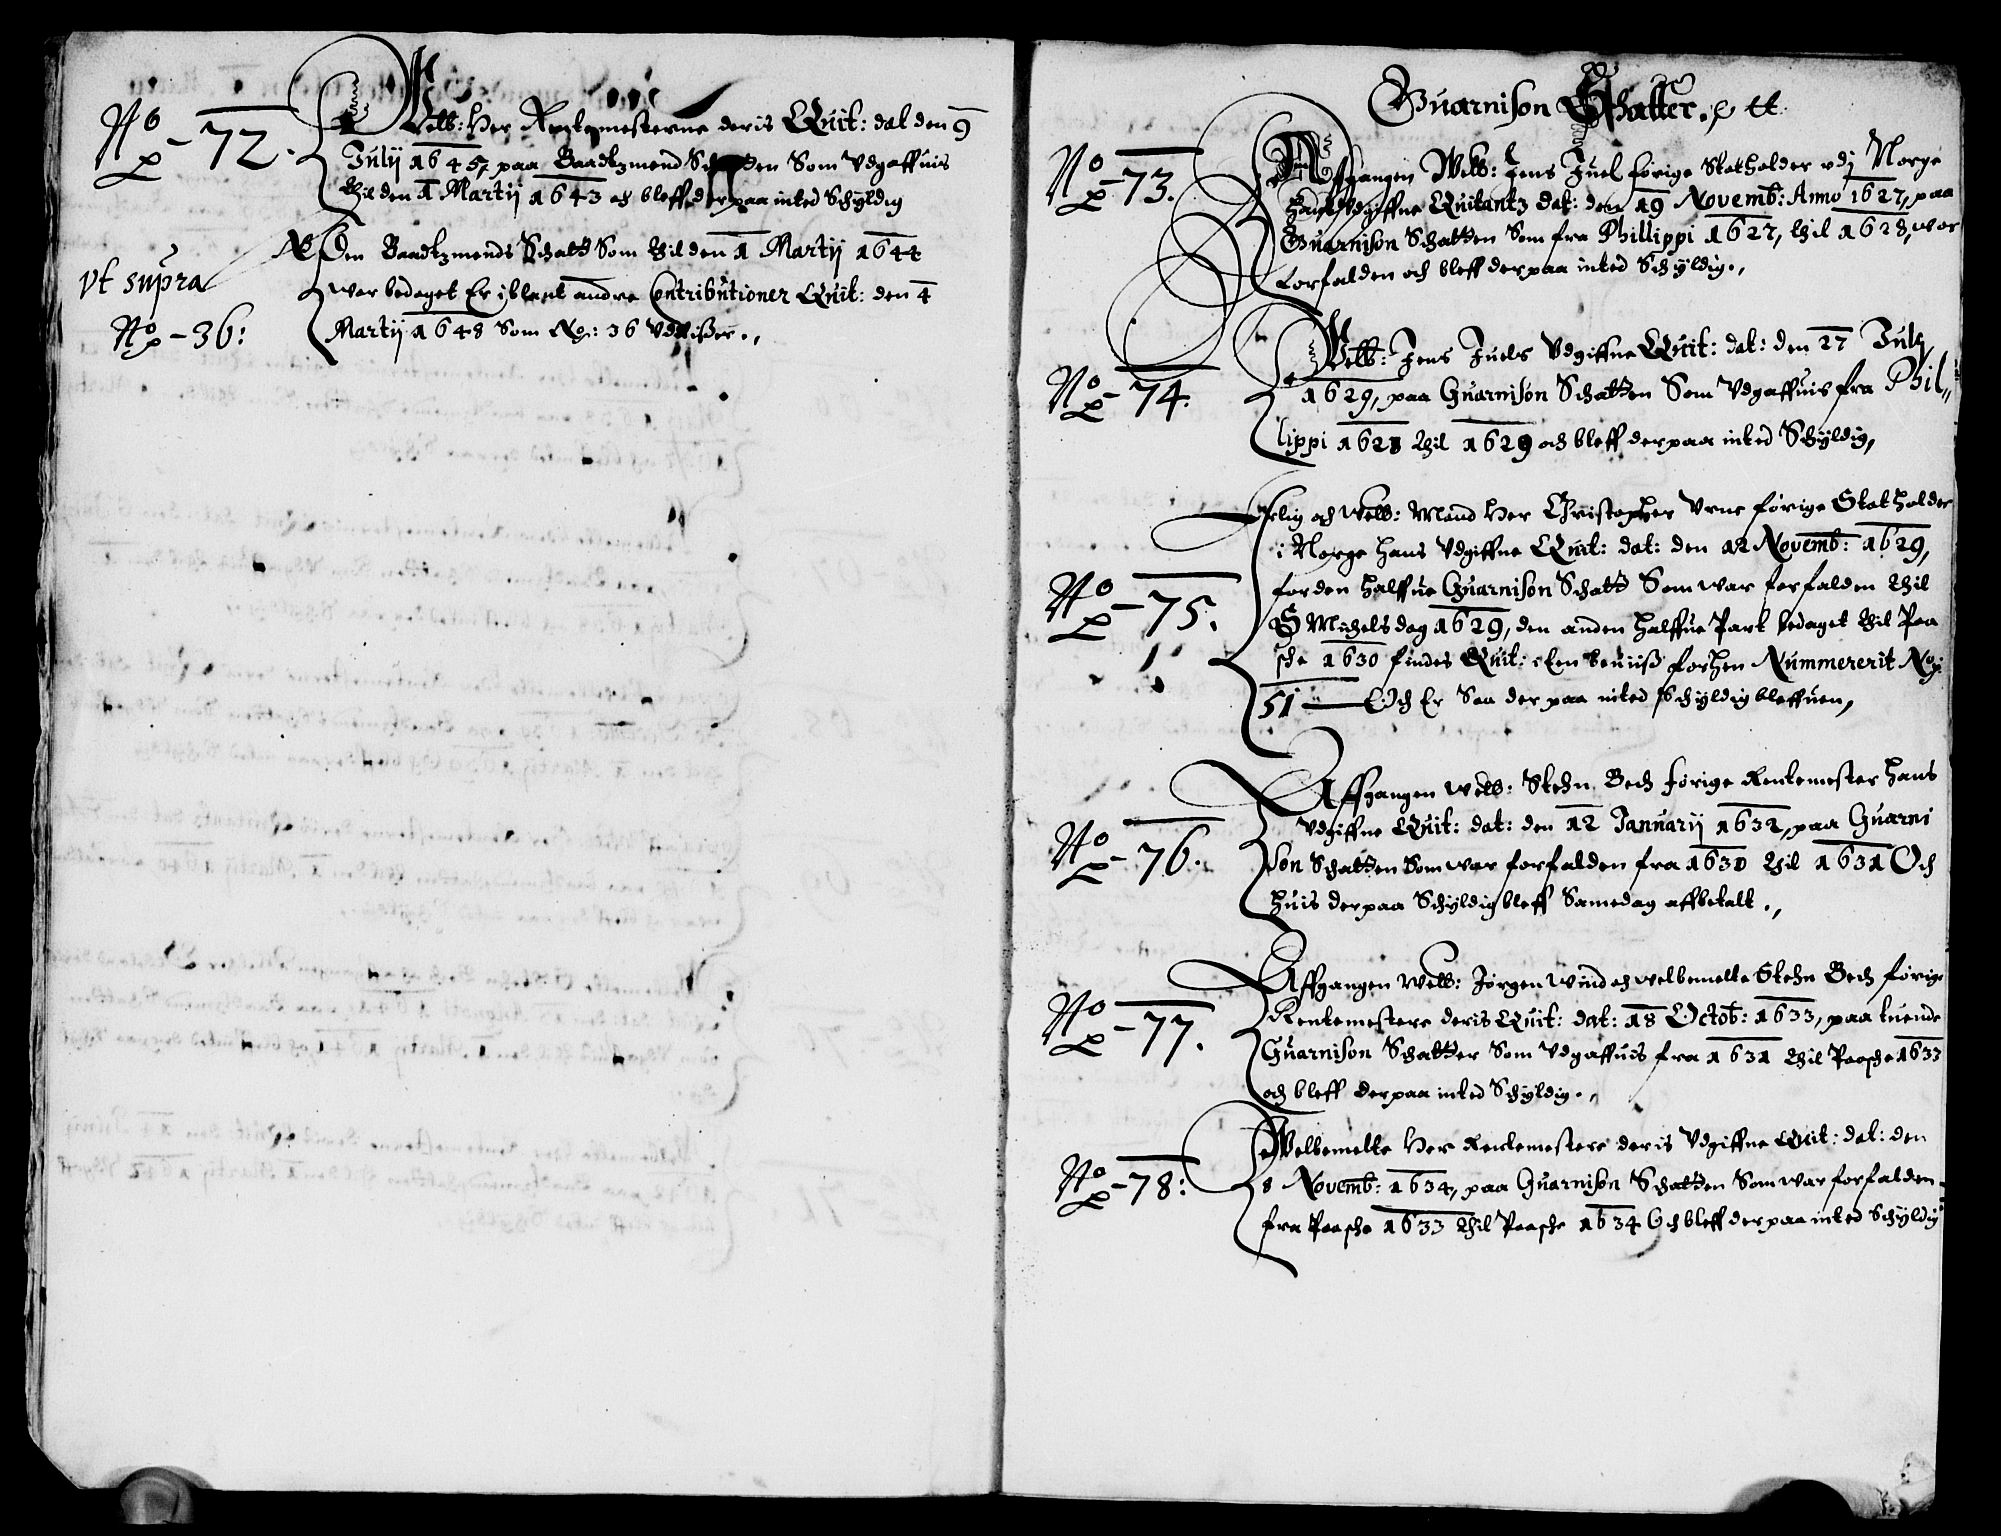 No 72.
Welb: Her Rentemesterne deris Quit: dat den 9
Julij 1645, paa Baadtzmend Schatten Som Vdgaffuis
thil den 1 Martij 1643 och bleff der paa inted Schÿldig
vt supra
No 36:
Den Baadtzmends Schatt Som thil den 1 Martij 1644
war bedaget Er iblant andre Contributioner Quit: den 4
Martij 1648 Som No: 36 Vduißer.,
Guarnison Schatter.
No 73.
Affgangen Welb: Jens Juel forige Statholder vdj Norge
Hans Vdgiffne Quitantz dat: den 19 Novemb: Anno 1627, paa
Guarnison Schatten Som fra Phillippi 1627, thil 1628, war
forfalden och bleff der paa inted Schÿldig.,
No 74.
Welb: Jens Juels Vdgiffne Quit: dat: den 27 Julij
1629, paa Guarnison Schatten Som Vdgaffuis fra Phil„
lippi 1628 thil 1629 och bleff der paa inted Schÿldig,
No 75.
Erlig och Welb: Mand Her Christopher Vrne forige Statholder
i Norge hans Vdgiffne Quit: dat: den 12 Novemb: 1629,
for den halffue Guarnison Schatt Som war forfalden thil
S Michels dag 1629, den anden halffue Part bedaget thil Paa
sche 1630 findes Quit: i Een beuiiß forhen Nummererit No:
51 — Och Er Saa der paa inted Schÿldig bleffuen,
No 76.
Affgangen Welb: Stehn Bech forige Rentemester hans
Vdgiffne Quit: dat: den 12 Januarij 1632, paa Guarni
son Schatten Som war forfalden fra 1630 thil 1631 Och
huis der paa Schÿldig bleff Samedag affbetalt.,
No 77.
Affgangen Welb: Jørgen Wind och welbemelte Stehn Bech forige
Rentemestere deris Quit: dat: 18 Octob: 1633, paa tuende
Guarnison Schatter Som Vdgaffuis fra 1631 thil Paasche 1633
och bleff der paa inted Schÿldig.,
No 78:
Welbemelte Her Rentemestere deris Vdgiffne Quit: dat: den
8 Novemb: 1634, paa Guarnison Schatten Som war forfalden
fra Paasche 1633 thil Paasche 1634 Och bleff der paa inted Schÿldig